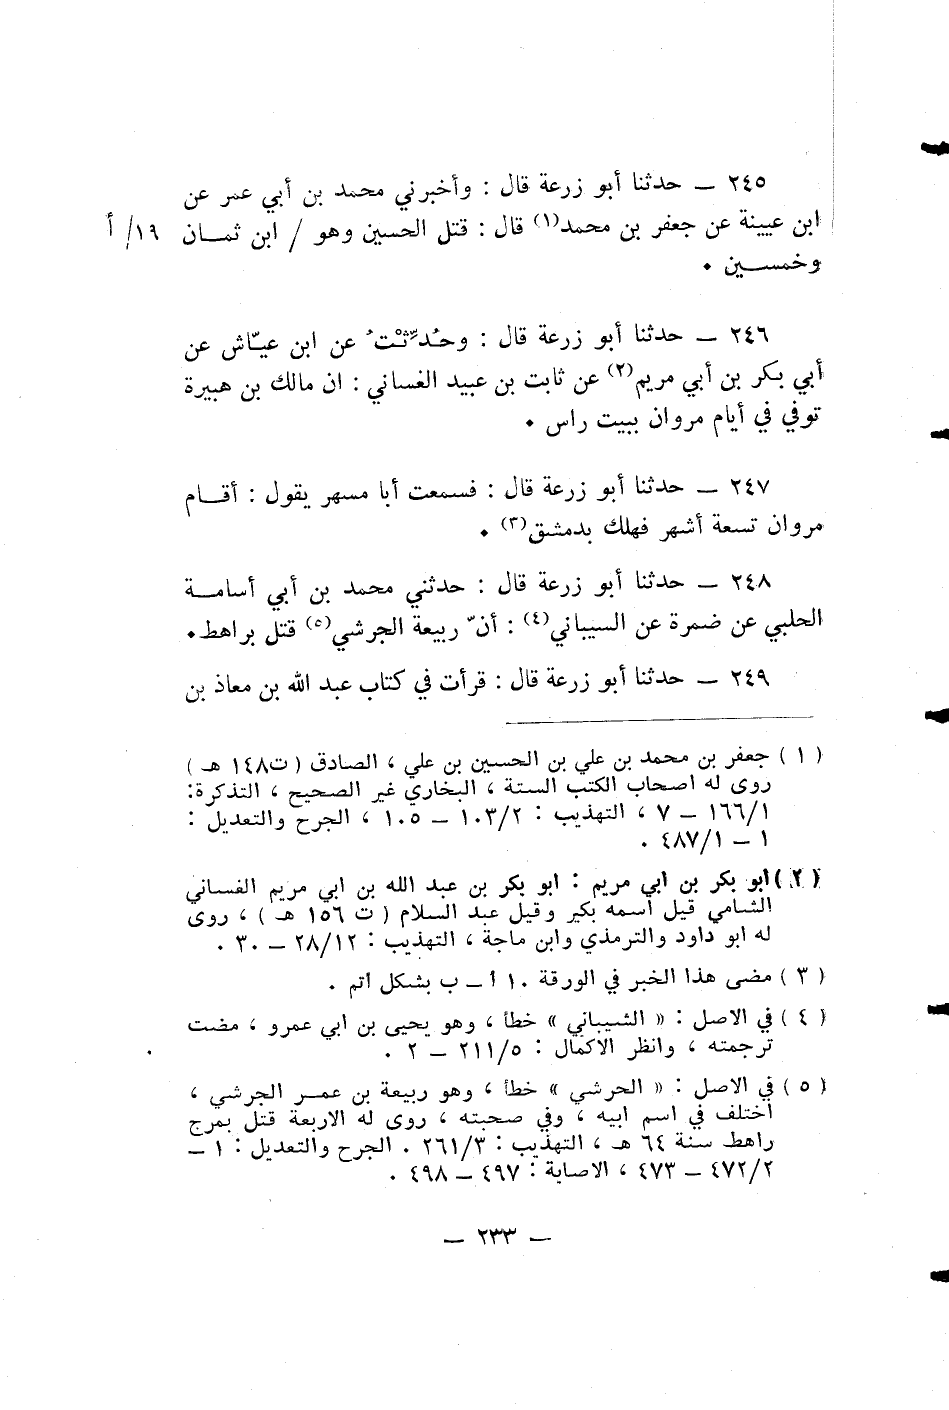 ٢٤٥ — حدثنا أبو زرعة قال : وأخبرني محمد بن أبي عمر عن
ابن عيينة عن جعفر بن محمد(١) قال : قتل الحسين وهو / ابن ثمـــان ١٩/ أ
وخمســـين .
٢٤٦ — حدثنا أبو زرعة قال : وحُدِّثْتُ عن ابن عيّاش عن
أبي بكر بن أبي مريم(٢) عن ثابت بن عبيد الغساني : ان مالك بن هبيرة
توفي في أيام مروان ببيت راس .
٢٤٧ — حدثنا أبو زرعة قال : فسمعت أبا مسهر يقول : أقـــام
مروان تسعة أشهر فهلك بدمشق(٣) .
٢٤٨ — حدثنا أبو زرعة قال : حدثني محمد بن أبي أسامـــة
الحلبي عن ضمرة عن السيباني(٤) : أنّ ربيعة الجرشي(٥) قتل براهط.
٢٤٩ — حدثنا أبو زرعة قال : قرأت في كتاب عبد الله بن معاذ بن
(١) جعفر بن محمد بن علي بن الحسين بن علي ، الصادق ( ت١٤٨ هـ )
روى له اصحاب الكتب الستة ، البخاري غير الصحيح ، التذكرة:
١٦٦/١ — ٧ ، التهذيب : ١٠٣/٢ — ١٠٥ ، الجرح والتعديل :
١ — ٤٨٧/١ .
(٢) ابو بكر بن ابي مريم : ابو بكر بن عبد الله بن ابي مريم الغساني
الشامي قيل اسمه بكير وقيل عبد السلام ( ت ١٥٦ هـ ) ، روى
له ابو داود والترمذي وابن ماجة ، التهذيب : ٢٨/١٢ — ٣٠ .
(٣) مضى هذا الخبر في الورقة ١٠ أ — ب بشكل أتم .
(٤) في الاصل : « الشيباني » خطأ ، وهو يحيى بن ابي عمرو ، مضت
ترجمته ، وانظر الاكمال : ٢١١/٥ — ٢ .
(٥) في الاصل : « الحرشي » خطأ ، وهو ربيعة بن عمـــر الجرشي ،
اختلف في اسم ابيه ، وفي صحبته ، روى له الاربعة قتل بمرج
راهط سنة ٦٤ هـ ، التهذيب : ٢٦١/٣ . الجرح والتعديل : ١ —
٤٧٢/٢ — ٤٧٣ ، الاصابة : ٤٩٧ — ٤٩٨ .
— ٢٣٣ —